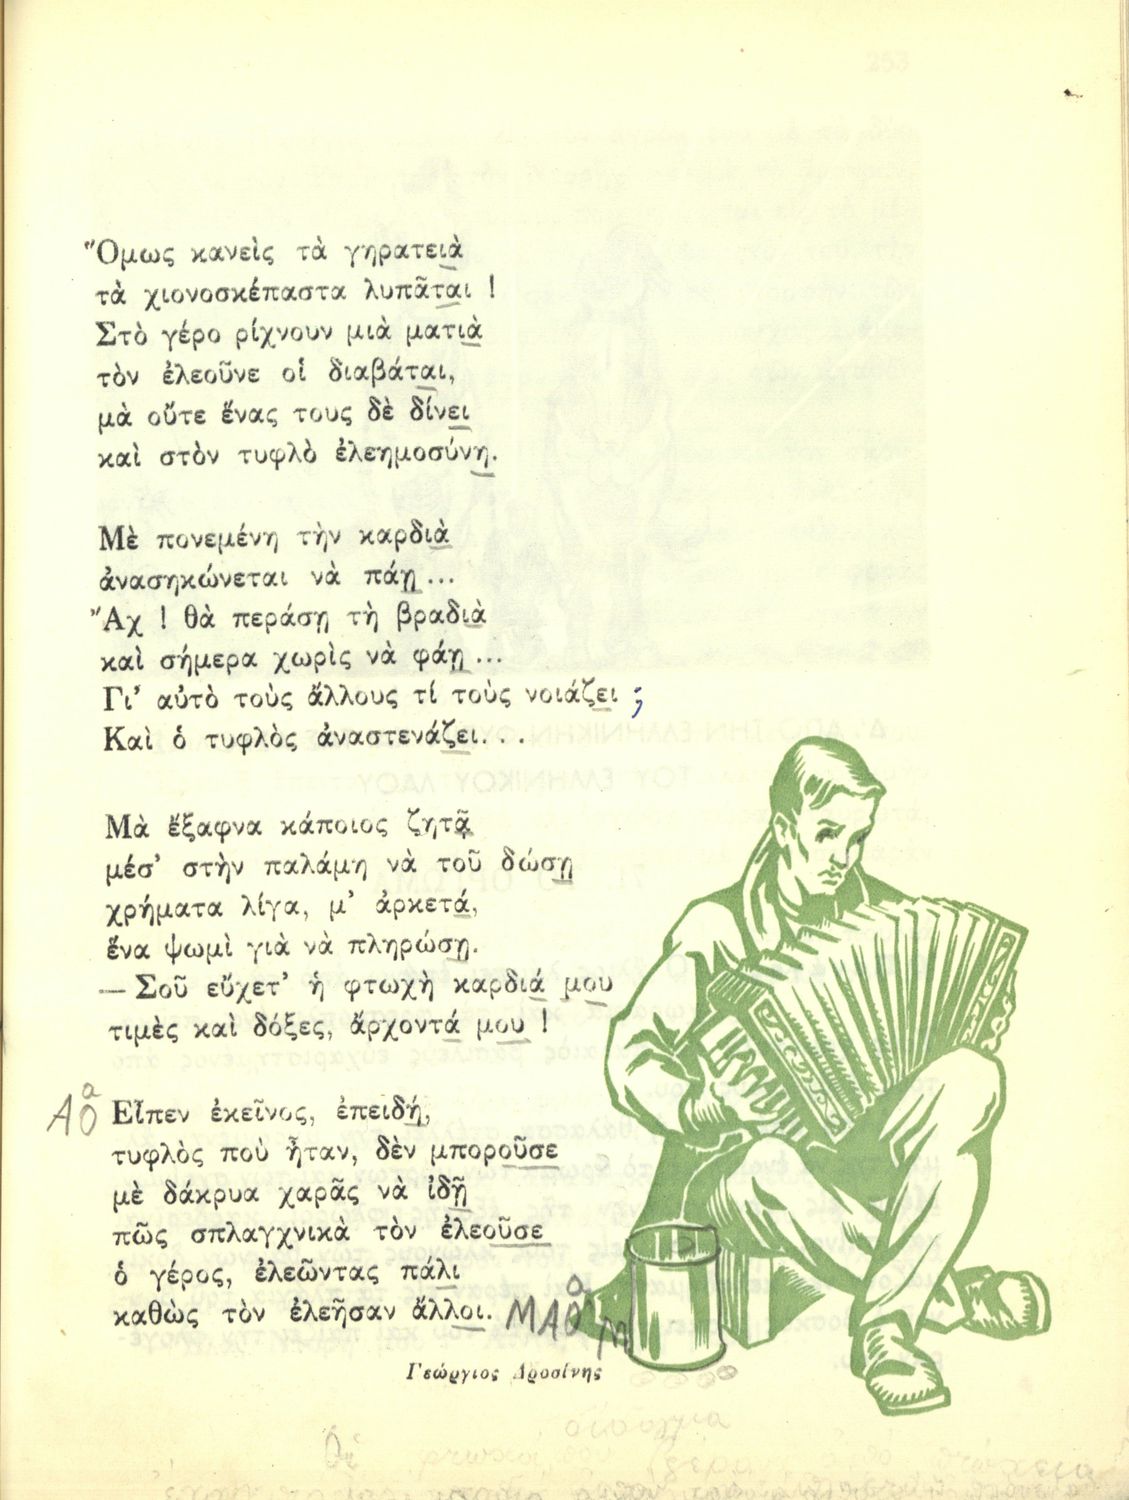 Ὅμως κανεὶς τὰ γηρατειὰ
τὰ χιονοσκέπαστα λυπᾶται !
Στὸ γέρο ρίχνουν μιὰ ματιὰ
τὸν ἐλεοῦνε οἱ διαβάται,
μὰ οὔτε ἕνας τους δὲ δίνει
καὶ στὸν τυφλὸ ἐλεημοσύνη.
Μὲ πονεμένη τὴν καρδιὰ
ἀνασηκώνεται νὰ πάῃ ...
Ἄχ ! θὰ περάσῃ τὴ βραδιὰ
καὶ σήμερα χωρὶς νὰ φάῃ ...
Γι’ αὐτὸ τοὺς ἄλλους τί τοὺς νοιάζει ;
Καὶ ὁ τυφλὸς ἀναστενάζει. . .
Μὰ ἔξαφνα κάποιος ζητᾷ
μέσ’ στὴν παλάμη νὰ τοῦ δώσῃ
χρήματα λίγα, μ’ ἀρκετά,
ἕνα ψωμὶ γιὰ νὰ πληρώσῃ.
— Σοῦ εὔχετ’ ἡ φτωχὴ καρδιά μου
τιμὲς καὶ δόξες, ἄρχοντά μου !
Εἶπεν ἐκεῖνος, ἐπειδή,
τυφλὸς ποὺ ἦταν, δὲν μποροῦσε
μὲ δάκρυα χαρᾶς νὰ ἰδῇ
πῶς σπλαγχνικὰ τὸν ἐλεοῦσε
ὁ γέρος, ἐλεῶντας πάλι
καθὼς τὸν ἐλεῆσαν ἄλλοι.
Γεώργιος Δροσίνης